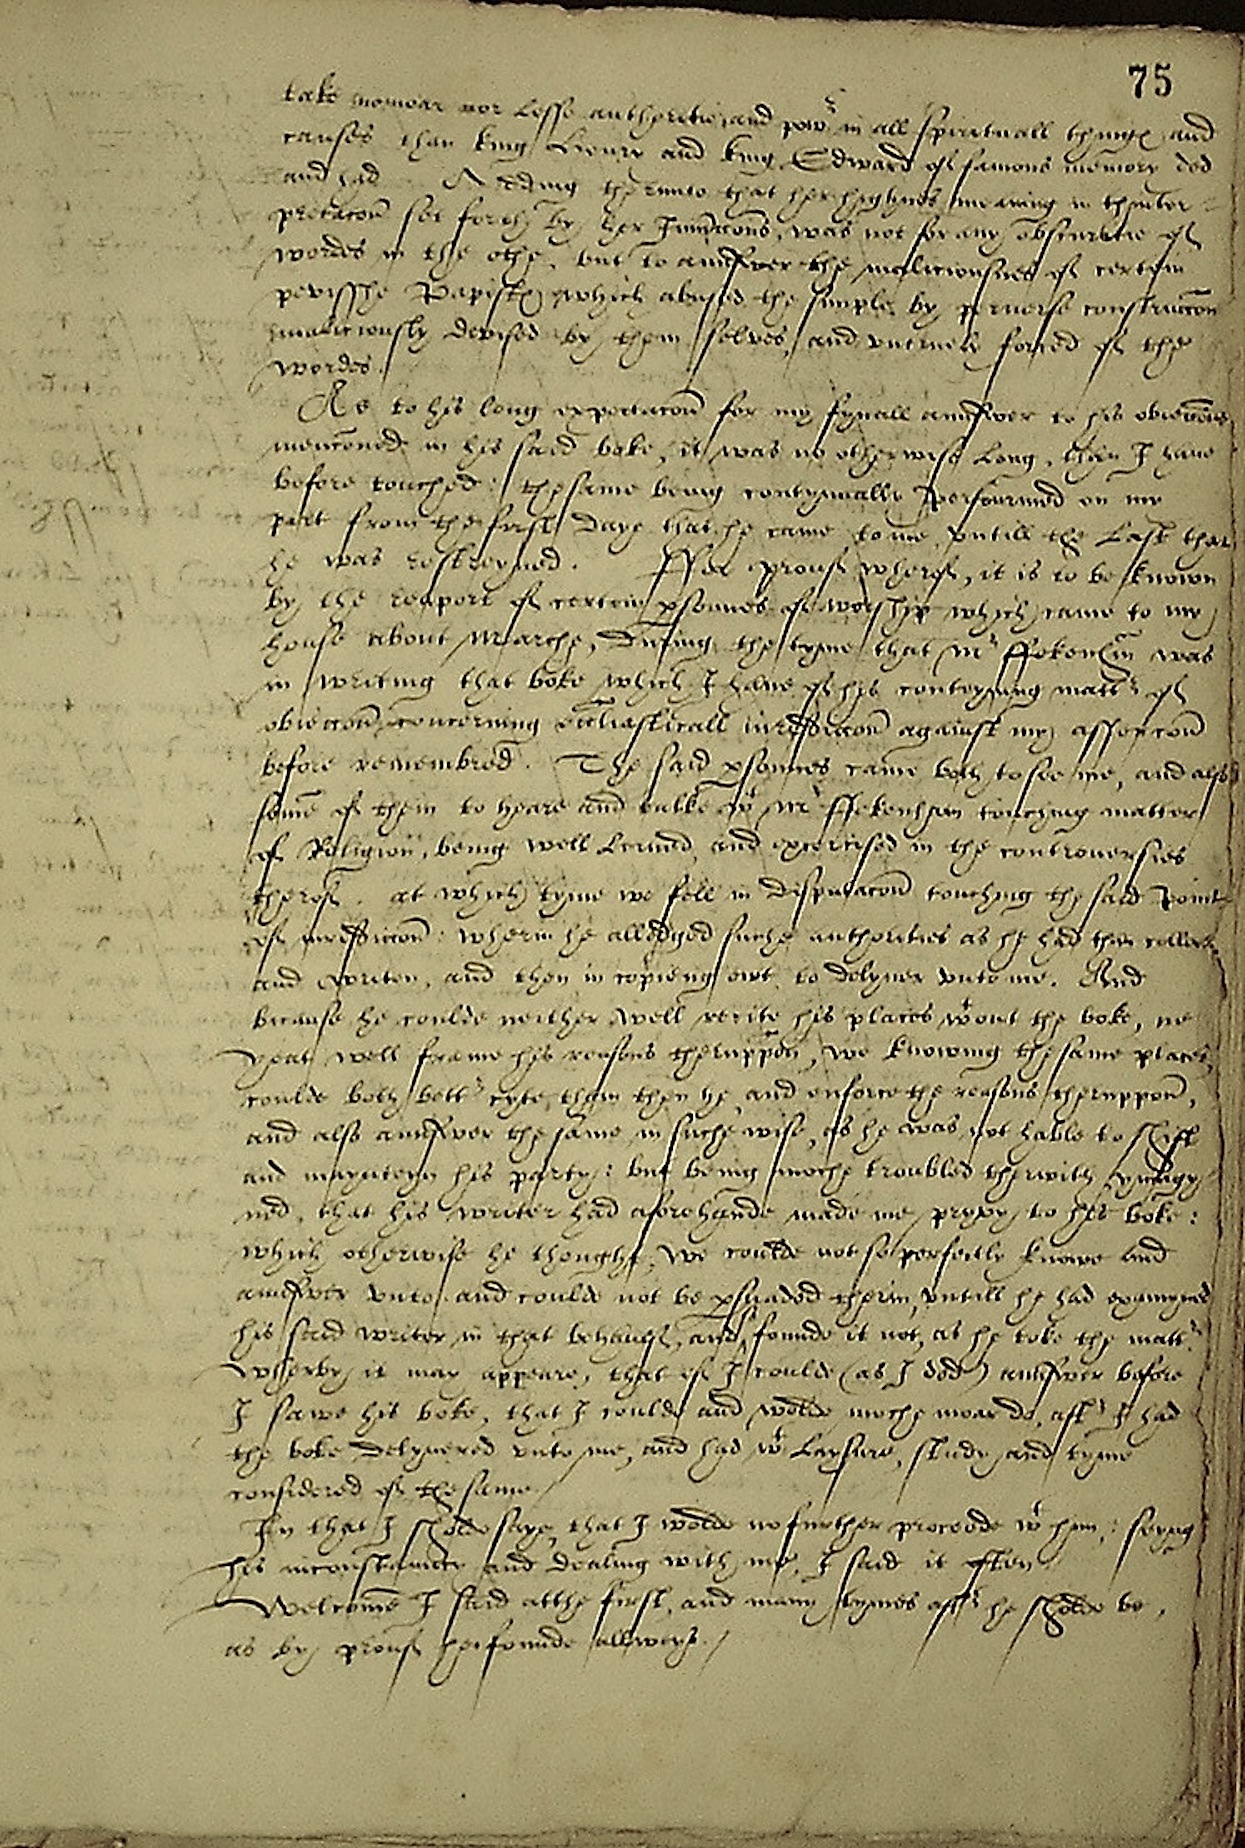 75
take nomoar nor lesse authoritie, and powr in all spirituall things and
causes than king Henry and king Edward of famous memory ded
and had. Adding therunto that her highnes meaning in thinter-
pretacon set forth by her Iniunctions, was not for any obscuritie of
wordes in the othe, but to aunswer the maliciousnes of certein
pevisshe Papists, which abused the simple by peruerse construccon
maliciously devised by them selves, and untruely forced of the
wordes.
As to his long expectacon for my fynall aunswer to his obiections
mencioned in his said boke, it was no otherwise long, then I haue
before touched: the same being contynually perfourmed on my
part from the first daye that he came to me, untill the last that
he was restreyned. Ffor prouf wherof, it is to be knowen
by the report of certein psonnes of worship which came to my
house about Marche, during the tyme that Mr Ffekenham was
in writing that boke which I haue of his conteyning mattr of
obieccon concerning eccliasticall iurisdiccon against my assercon
before remembred. The said psonnes came both to see me, and also
some of them to heare and talke wt Mr Ffekenham touching matter
of Religion, being well lerned, and exercised in the controuersies
therof. at which tyme we fell in disputacon touching the said point
of iurisdiccon: wherin he alledged suche authorities as he had then collected
and writen, and then in copieng out to delyuer unto me. And
bicause he coulde neither well recite his places wtout the boke, ne
yeat well frame his reasons theruppon, we knowing the same places,
coulde both bettr cyte them then he, and enforce the reasons theruppon,
and also aunswer the same in suche wise, as he was not hable to shift
and maynteyn his party: but being moche troubled therwith ymagy-
ned, that his writer had aforehande made me pryvy to his boke:
which otherwise he thought, we coulde not so perfectly knowe and
aunswer unto. and coulde not be psuaded therin, untill he had examyned
his said writer in that behaulf, and founde it not, as he toke the mattr.
Wherby it may appeare, that if I coulde (as I ded) aunswer before
I sawe his boke, that I coulde and wolde moche moar do, aftr I had
the boke delyuered unto me, and had wt laysure, study and tyme
considered of the same.
In that I sholde saye, that I wolde no further procede wt him: seyng
his inconstancie and dealing with me, I said it often
Welcome I said at the first, and many tymes aftr he sholde be,
as by prouf he founde allweys.